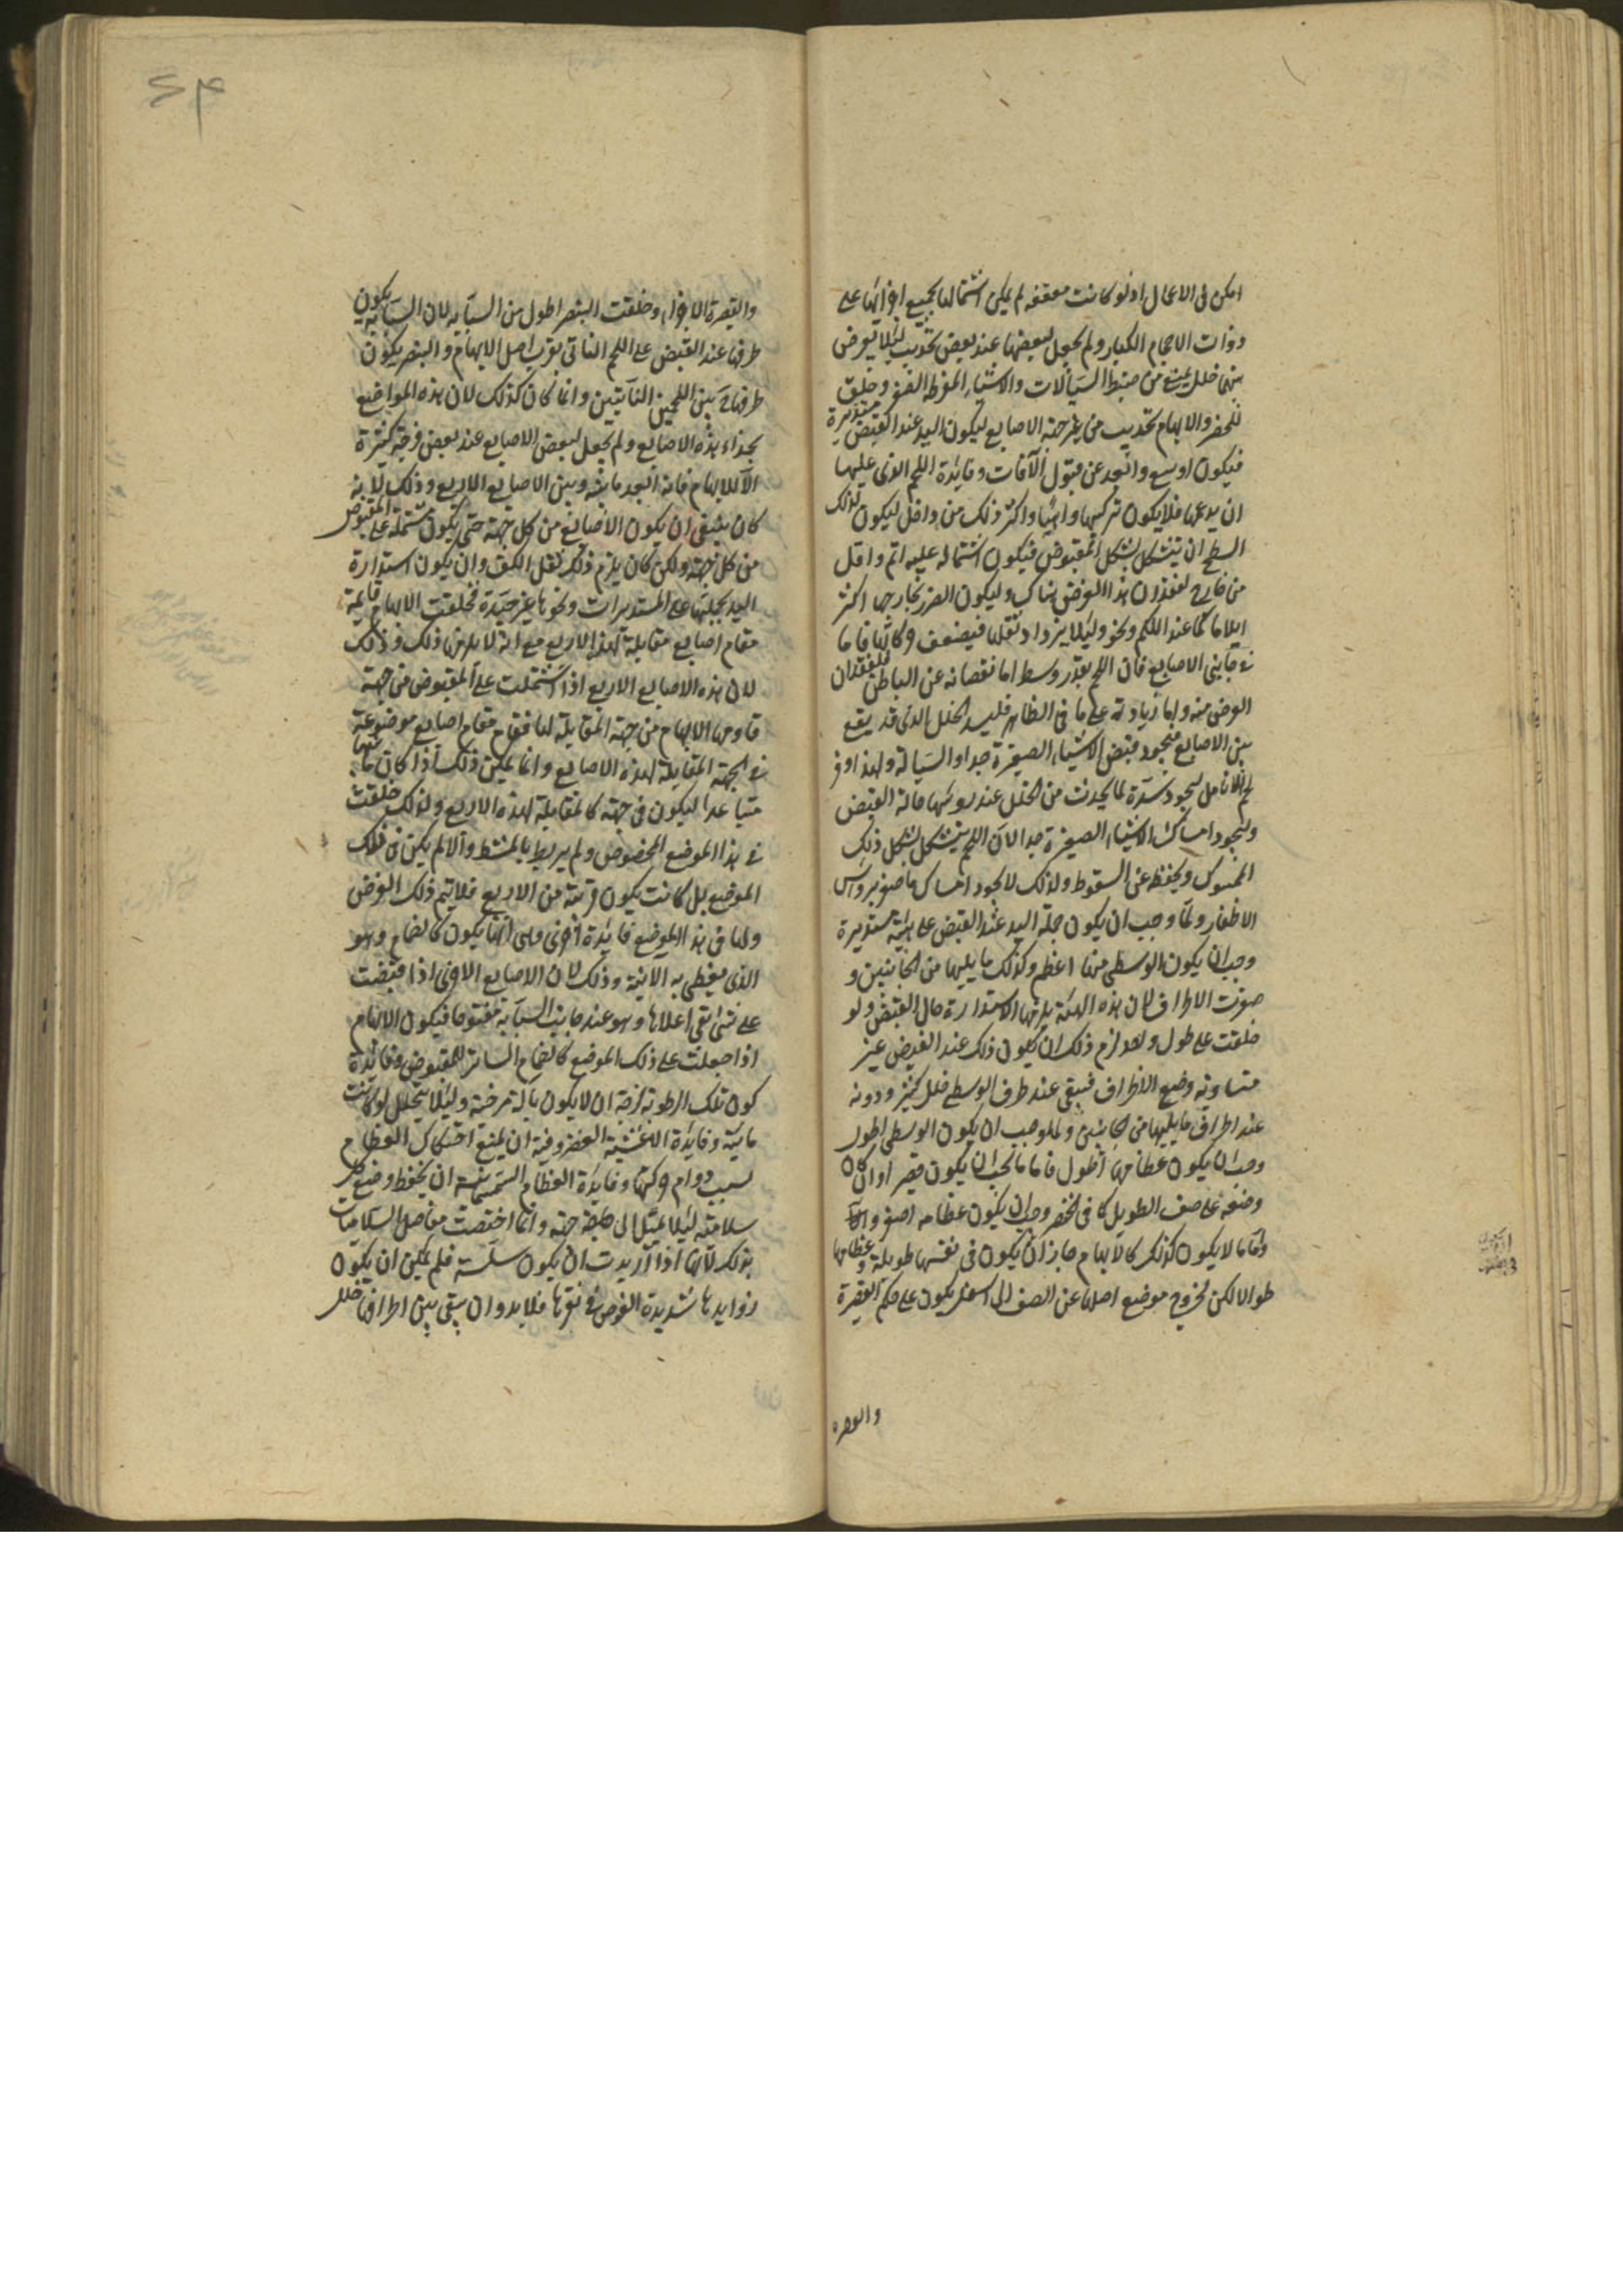 امكن فى الاعمال اذ لو كانت معقفه لم يمكن اشتمالها بجميع اجزائها على
ذوات الاحجام الكبار ولم يجعل لبعضها عند بعض تحديب لئلا تعرض
بينها خلل يمنع من ضبط السيالات والاشياء المفرطه الصغر وخلق
للخنصر والابهام تحديب من غير جهة الاصابع ليكون اليد عند القبض مستديرة
فيكون اوسع وابعد عن قبول الآفات وفائدة اللحم الذى عليها
ان يدعمها فلا يكون تركيبها واهيا واكثر ذلك من داخل ليكون لذلك
السطح ان يتشكل بشكل المقبوض فيكون اشتماله عليه اتم واقل
من خارج لفقدان هذا الغرض هناك وليكون الضرر بخارجها اكثر
ايلاما كما عند اللكم ونحوه ولئلا يزداد ثقلها فيضعف حركاتها فاما
فى جانبى الاصابع فان اللحم بقدر وسط اما نقصانه عن الباطن فلفقدان
الغرض منه واما زيادته على ما فى الظاهر فليسد الخلل الذى قد يقع
بين الاصابع فيجود قبض الاشياء الصغيرة جدا والسيالة ولهذا وفر
لحم الانامل ليجود سده لما يحدث من الخلل عند روسها حالة القبض
وليجود امساك الاشياء الصغيرة جدا لان اللحم يتشكل بشكل ذلك
الممسوك ويحفظ عن السقوط ولذلك لا يجود امساك ما صغر برواس
الاظفار ولما وجب ان يكون جملة اليد عند القبض على هيئة مستديرة
وجب ان يكون الوسطى منها اعظم وكذلك ما يليها من الجانبين و
صغرت الاطراف لان هذه الهيئة يلزمها الاستدارة حال القبض ولو
خلقت على طول واحد لزم ذلك ان يكون ذلك عند القبض غير
متساوية وضع الاطراف فيبقى عند طرف الوسطى خلل كثير ودونه
عند اطراف ما يليها من الجانبين ولما وجب ان يكون الوسطى اطول
وجب ان يكون عظامها اطول فاما ما يجب ان يكون قصيرا وان كان
وضعه على صف الطويل كما فى الخنصر وجب ان يكون عظامه اصغر
واما ما لا يكون كذلك كالابهام جاز ان يكون فى نفسها طويلة وعظامها
طوالا لكن لخروج موضع اصلها عن الصف الى اسفل يكون على حكم القصيرة
والقصيره
۶۴
والقصيرة الاجزاء وخلقت البنصر اطول من السبابه لان السبابه يكون
طرفها عند القبض على اللحم الناتى بقرب اصل الابهام والبنصر يكون
طرفها بين اللحمين الناتيتين وانما كان كذلك لان هذه المواضع
بحذاء هذه الاصابع ولم يجعل لبعض الاصابع عند بعض فرجة كثيرة
الا للابهام فانه ابعد ما بينه وبين الاصابع الاربع وذلك لانه
كان ينبغى ان يكون الاصابع من كل جهة حتى يكون مشتملة على المقبوض
من كل جهة ولكن كان يلزم ذلك ثقل الكف وان يكون استدارة
اليد بجملتها على المستديرات ونحوها غير جيدة فخلقت الابهام قايمة
مقام اصابع مقابلة لهذه الاربع مع انه لا يلزمها ذلك وذلك
لان هذه الاصابع الاربع اذا اشتملت على المقبوض من جهة
قاومها الابهام من جهة المقابلة لها فقام مقام اصابع موضوعة
فى الجهة المقابلة لهذه الاصابع وانما يمكن ذلك اذا كان ما بينهما
متباعدا ليكون فى جهة كالمقابلة لهذه الاربع ولذلك خلقت
فى هذا الموضع المخصوص ولم يربط بالمشط والا لم يكن فى ذلك
الموضع بل كانت يكون قريبة من الاربع فلا يتم ذلك الغرض
ولها فى هذا الموضع فائدة اخرى وهى انها يكون كالصمام وهو
الذى يغطى به الانية وذلك لان الاصابع الاخرى اذا قبضت
على شئ بقى اعلاها وهو عند جانب السبابة مفتوحا فيكون الابهام
اذا جعلت على ذلك الموضع كالصمام الساتر للمقبوض وفائدة
كون تلك الرطوبة لزجة ان لا يكون بآلة مرخية ولئلا يتحلل لو كانت
مائية وفايدة الاغشية الغضروفية ان يمنع احتكاك العظام
بسبب دوام حركتها وفايدة العظام السمسمانية ان يحفظ وضع كل
سلامية لئلا يميل الى جهة وانما اختصت مفاصل السلاميات
بذلك لانها اذا اريدت ان يكون سلسة فلم يمكن ان يكون
زوايدها شديدة الغوص فى نقرها فلا بد وان يبقى بين اطرافها خلل